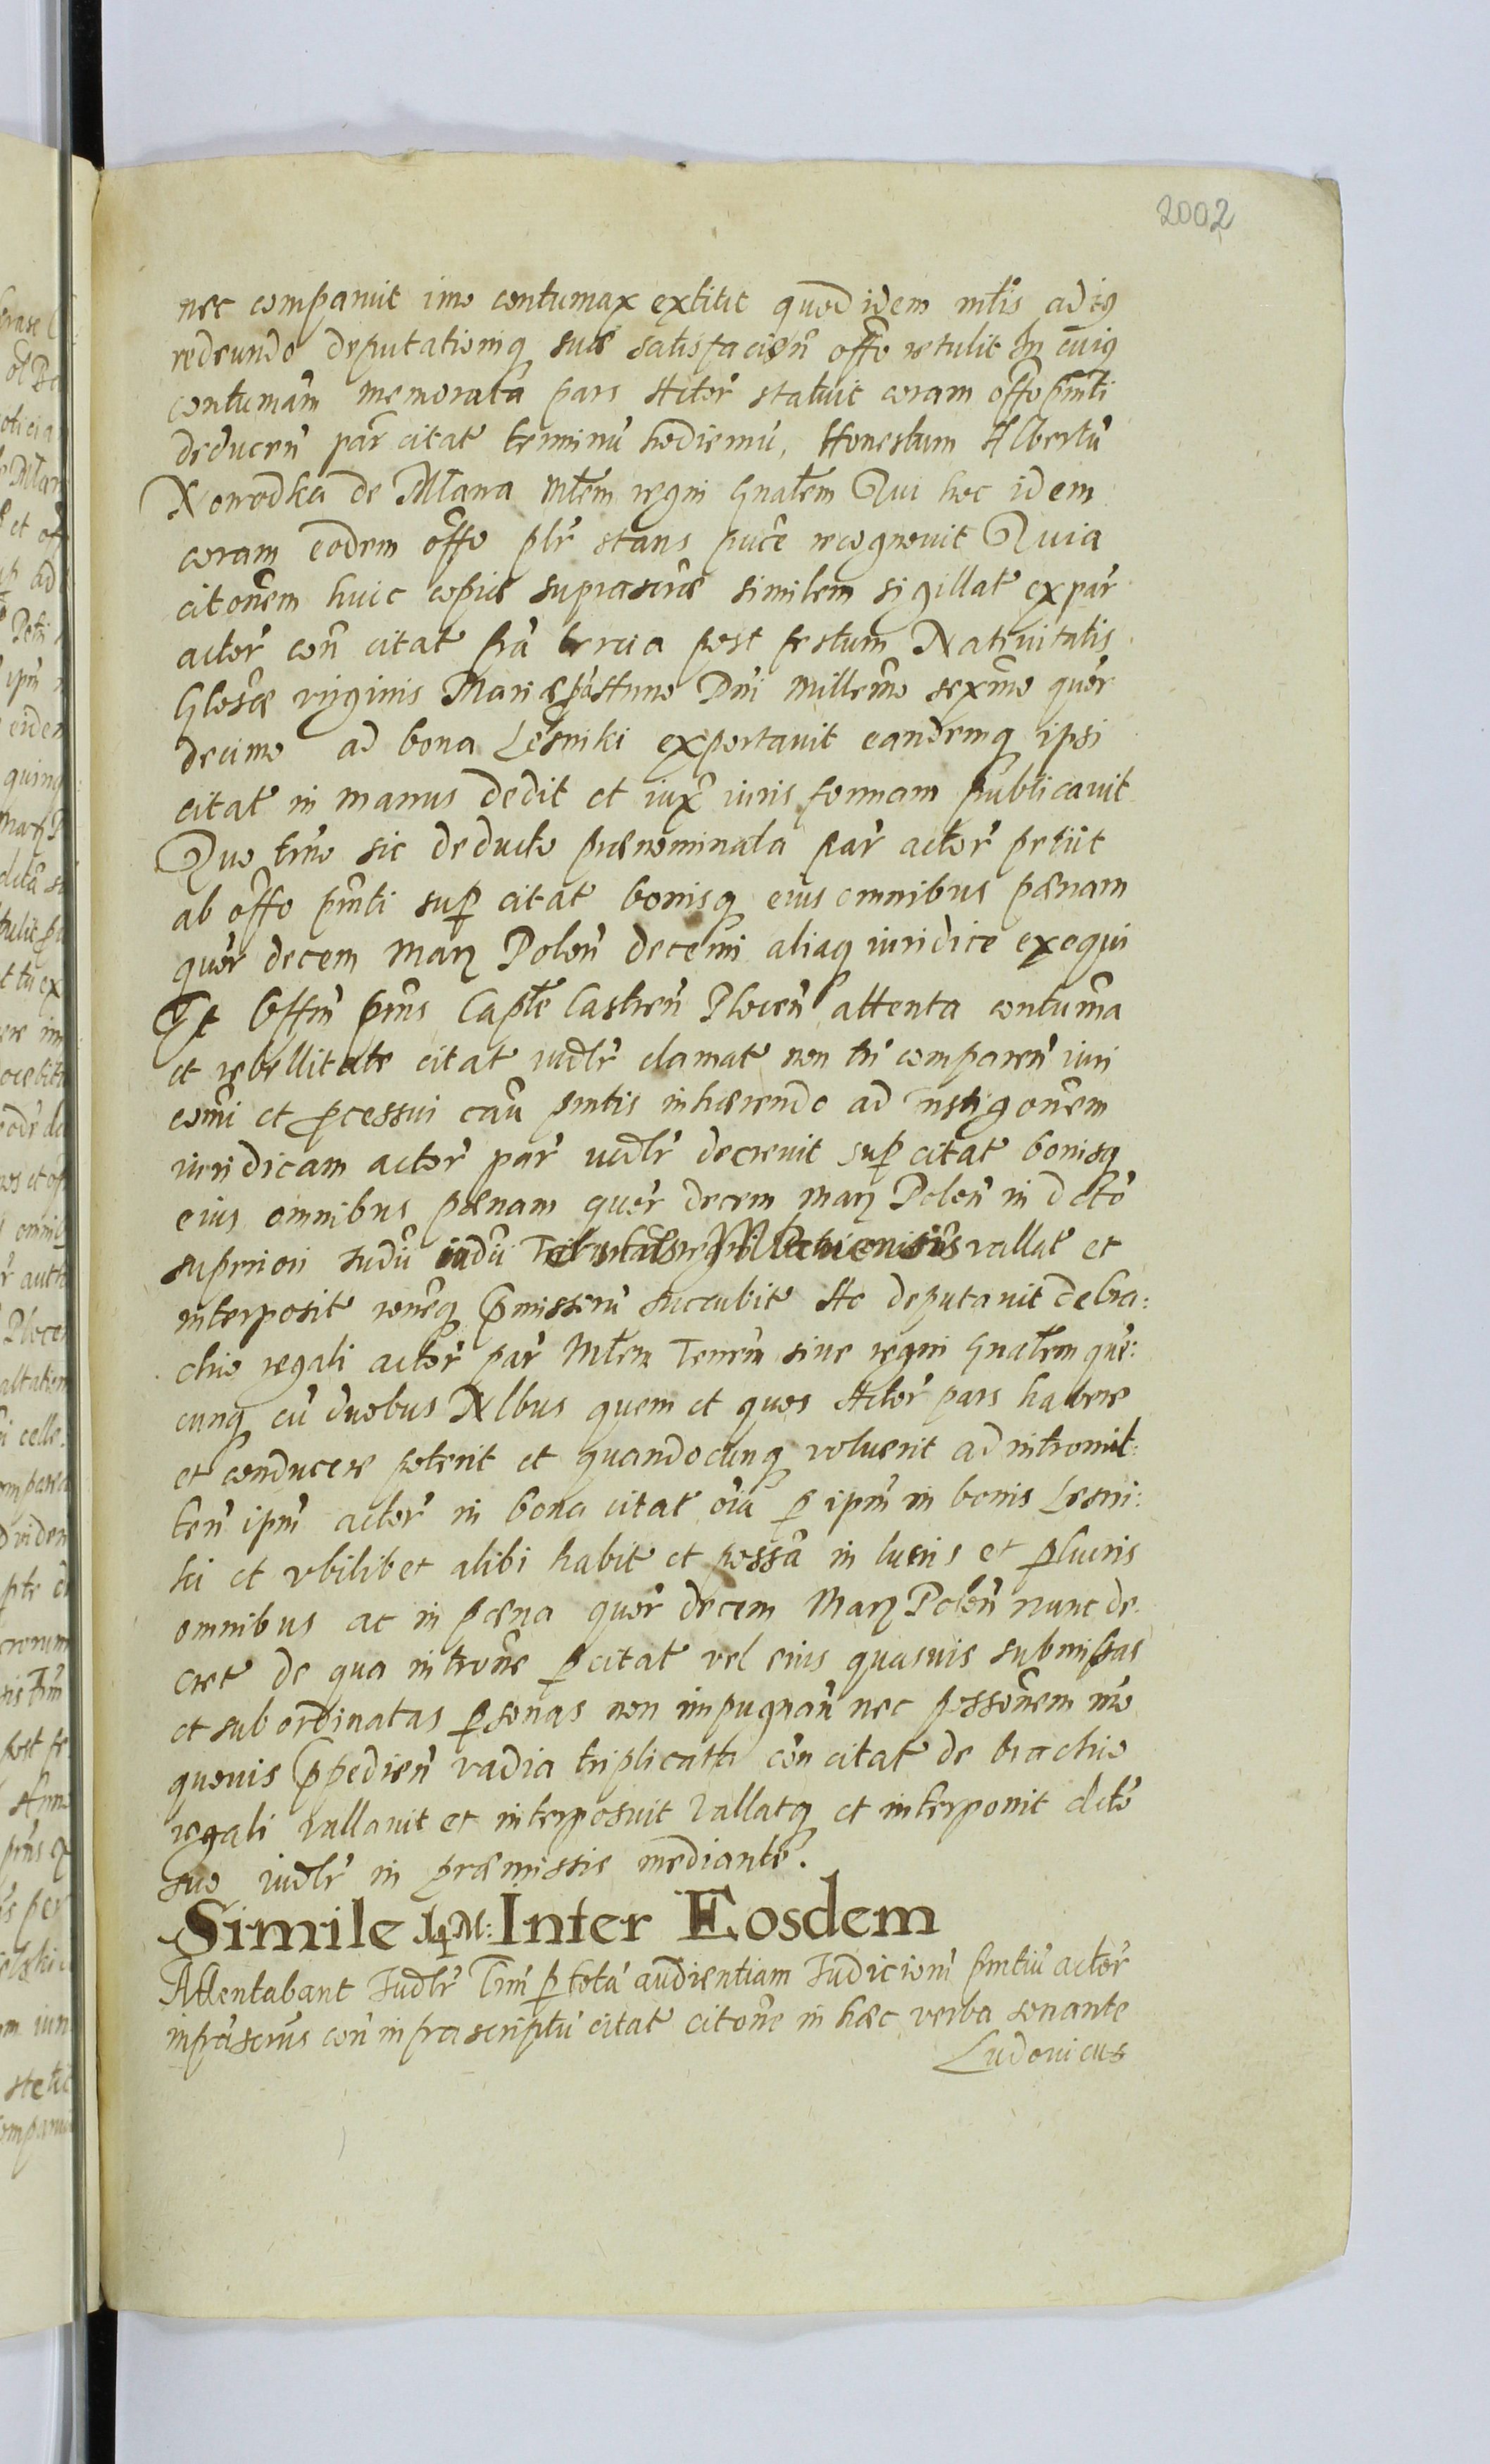 2002
nec comparuit imo contumax extitit quod idem mlis ad iɋ
redeundo deputationiq suae satisfacien offo retulit In cuiɋ
contumam memorata pars Actor statuit coram offo pnti
deducen par citat terminu hodiernu, Honestum Albertu
de Mlawa Mlem regni Gnalem Qui hoc idem
coram eodem offo plr stans puce recognovit Quia
citonem huic copiae suprascrae similem sigillat ex par
actor con citat fra tercia post festum Nativitatis
Glosae virginis Mariae Anno Dni Millemo sexmo quer
decimo ad bona Lesniki exportavit eandemq ipsi
citat in manus dedit et iux iuris formam publicavit
Quo tmo sic deducto praenominata par actor petiit
ab offo pnti sup citat bonisq eius omnibus paenam
quer decem Marz Polon decerni aliaq iuridice exequi
Et Offm pns Capte Castren Plocen attenta contuma
et rebellitate citat iudlr clamat non tn comparen iuri
comi et pcessui cau pntis inhaerendo ad instigonem
iuridicam actor par iudlr decrevit sup citat bonisq
eius omnibus paenam quer decem marz Polon in dcto
suprriori Judu iudu vallat et
interposit roneq pmissoru succubit Ac deputavit de bra:
chio regali actor par Mlem Terrem sive regni Gnalem que:
cunq cu duobus Nlbus quem et quos Actor pars habere
et conducere poterit et quandocunq voluerit ad intromit:
ten ipm actor in bona citat oia p ipm in bonis Lesni:
ki et vbilibet alibi habit et possa in lucris et plucris
omnibus ac in paena quer decem Marz Polon nunc de
cret de qua introne p citat vel eius quasvis submissas
et subordinatas psonas non impugnan nec possonem mo
quovis ppedien vadia triplicata con citat de brachio
regali vallavit et interposuit Vallatq et interponit dcto
suo iudlr in praemissis mediante.
Simile 14 M: Inter Eosdem
Attentabant Judlr Tmi p tota audientiam Judiciom pntiu actor
infrascrus con infrascriptu citat citone in haec verba sonante
Ludovicus